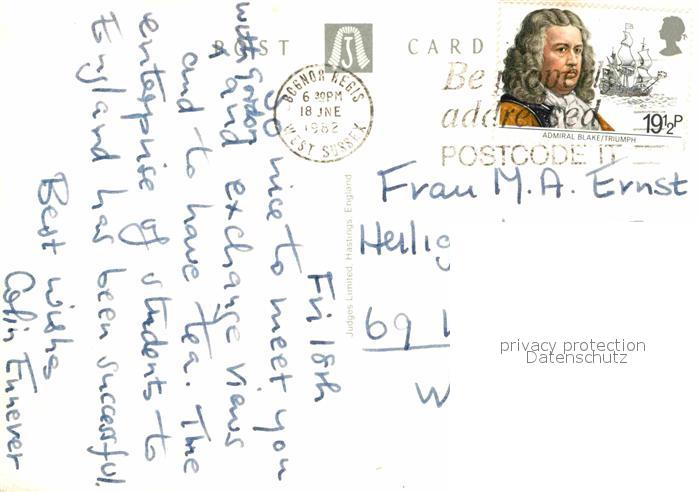 POST CARD
BOGNOR REGIS
6 30PM
18 JNE
1982
WEST SUSSEX
Be
addressed
POSTCODE IT
19½P
ADMIRAL BLAKE/TRIUMPH
Judges Limited, Hastings, England
Fri 18th
So nice to meet you
with Gordon
& and exchange views
and to have tea. The
enterprise of students to
England has been successful.
Best wishes
Colin Ennever
Frau M.A. Ernst
Heilig
69
W
privacy protection
Datenschutz